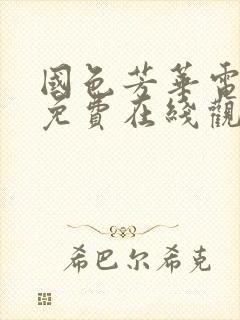 國色芳華電
免費在綫觀
希巴尔希克